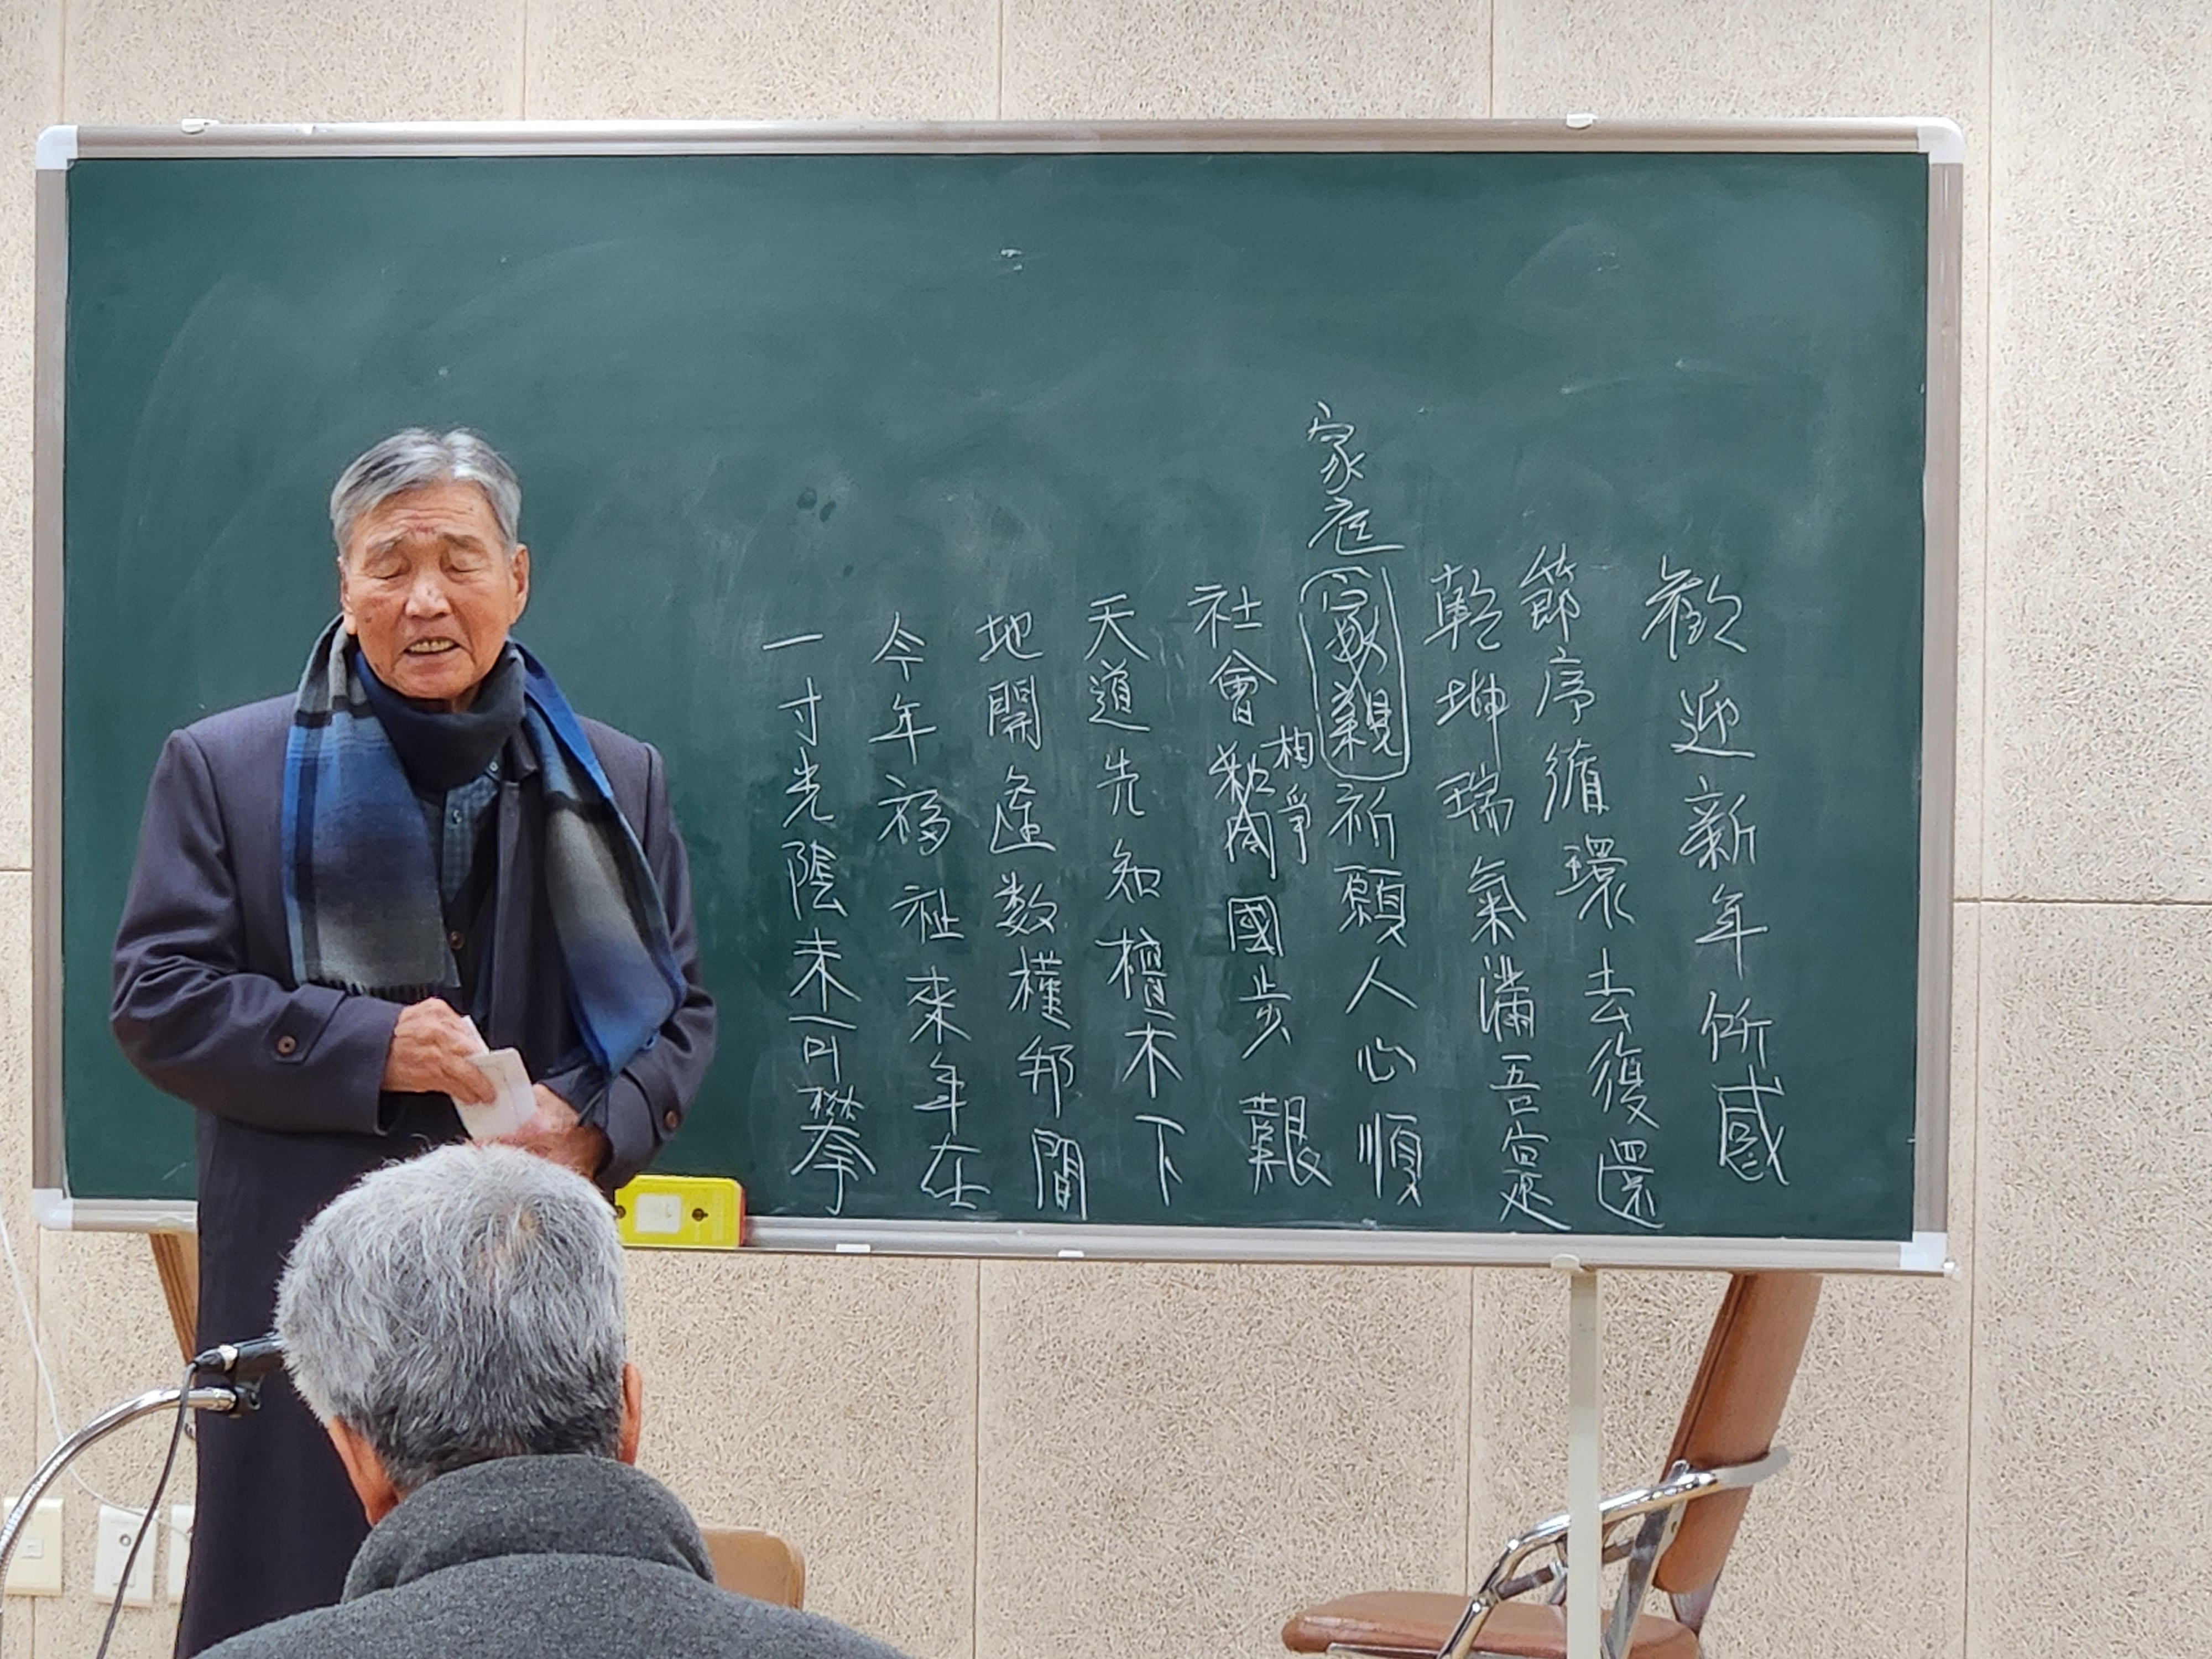 歡迎新年所感
節序循環去復還
乾坤瑞氣滿吾
家庭親祈願人心順
社會國步艱
相爭
天道先知檀木下
地開数槿邦間
今年福祉來年在
一寸光陰未可攀